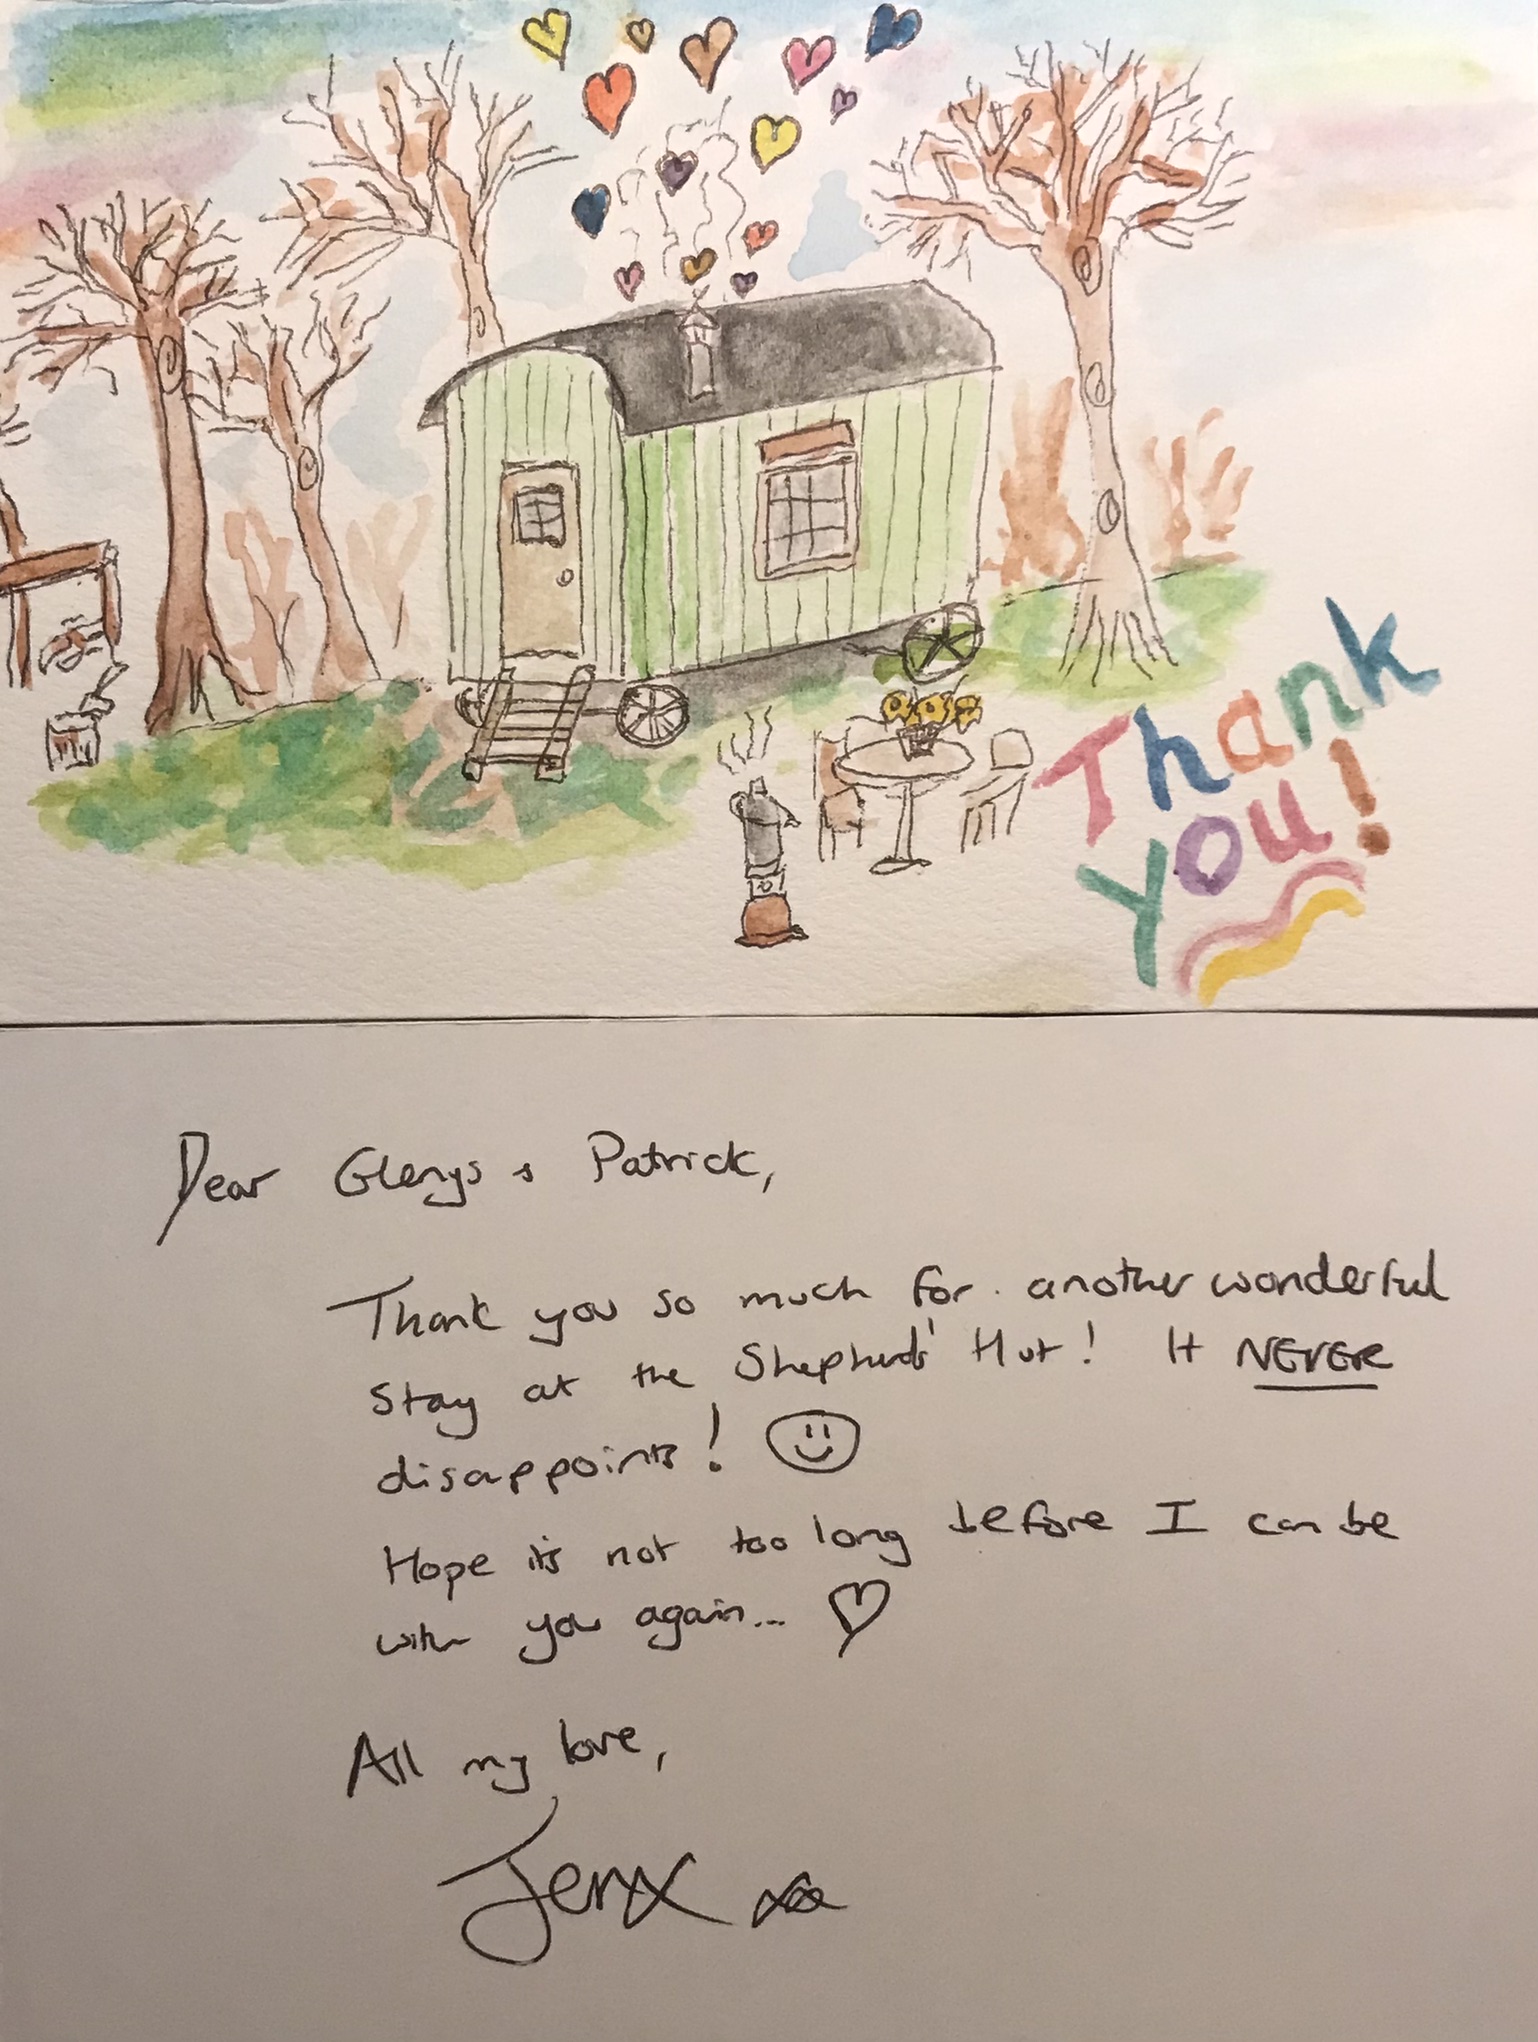 Thank
You!
Dear Glenys & Patrick,
Thank you so much for another wonderful
stay at the Shepherds' Hut! It NEVER
disappoints!
Hope it's not too long before I can be
with you again...
All my love,
Jenx xx